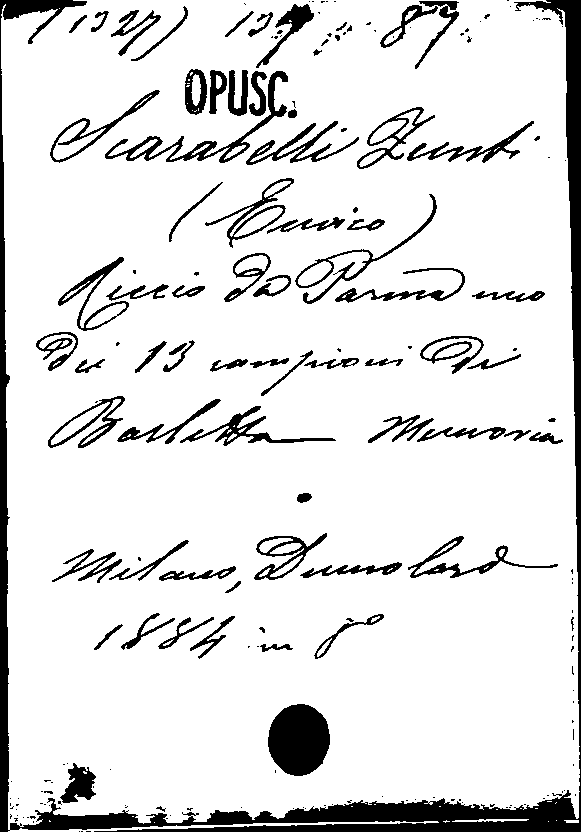 (1327) 137 87
OPUSC.
Scarabelli Zunti
(Enrico)
Riccio da Parma uno
dei 13 campioni di
Barletta Memoria
Milano, Dumolard
1884 in 8º